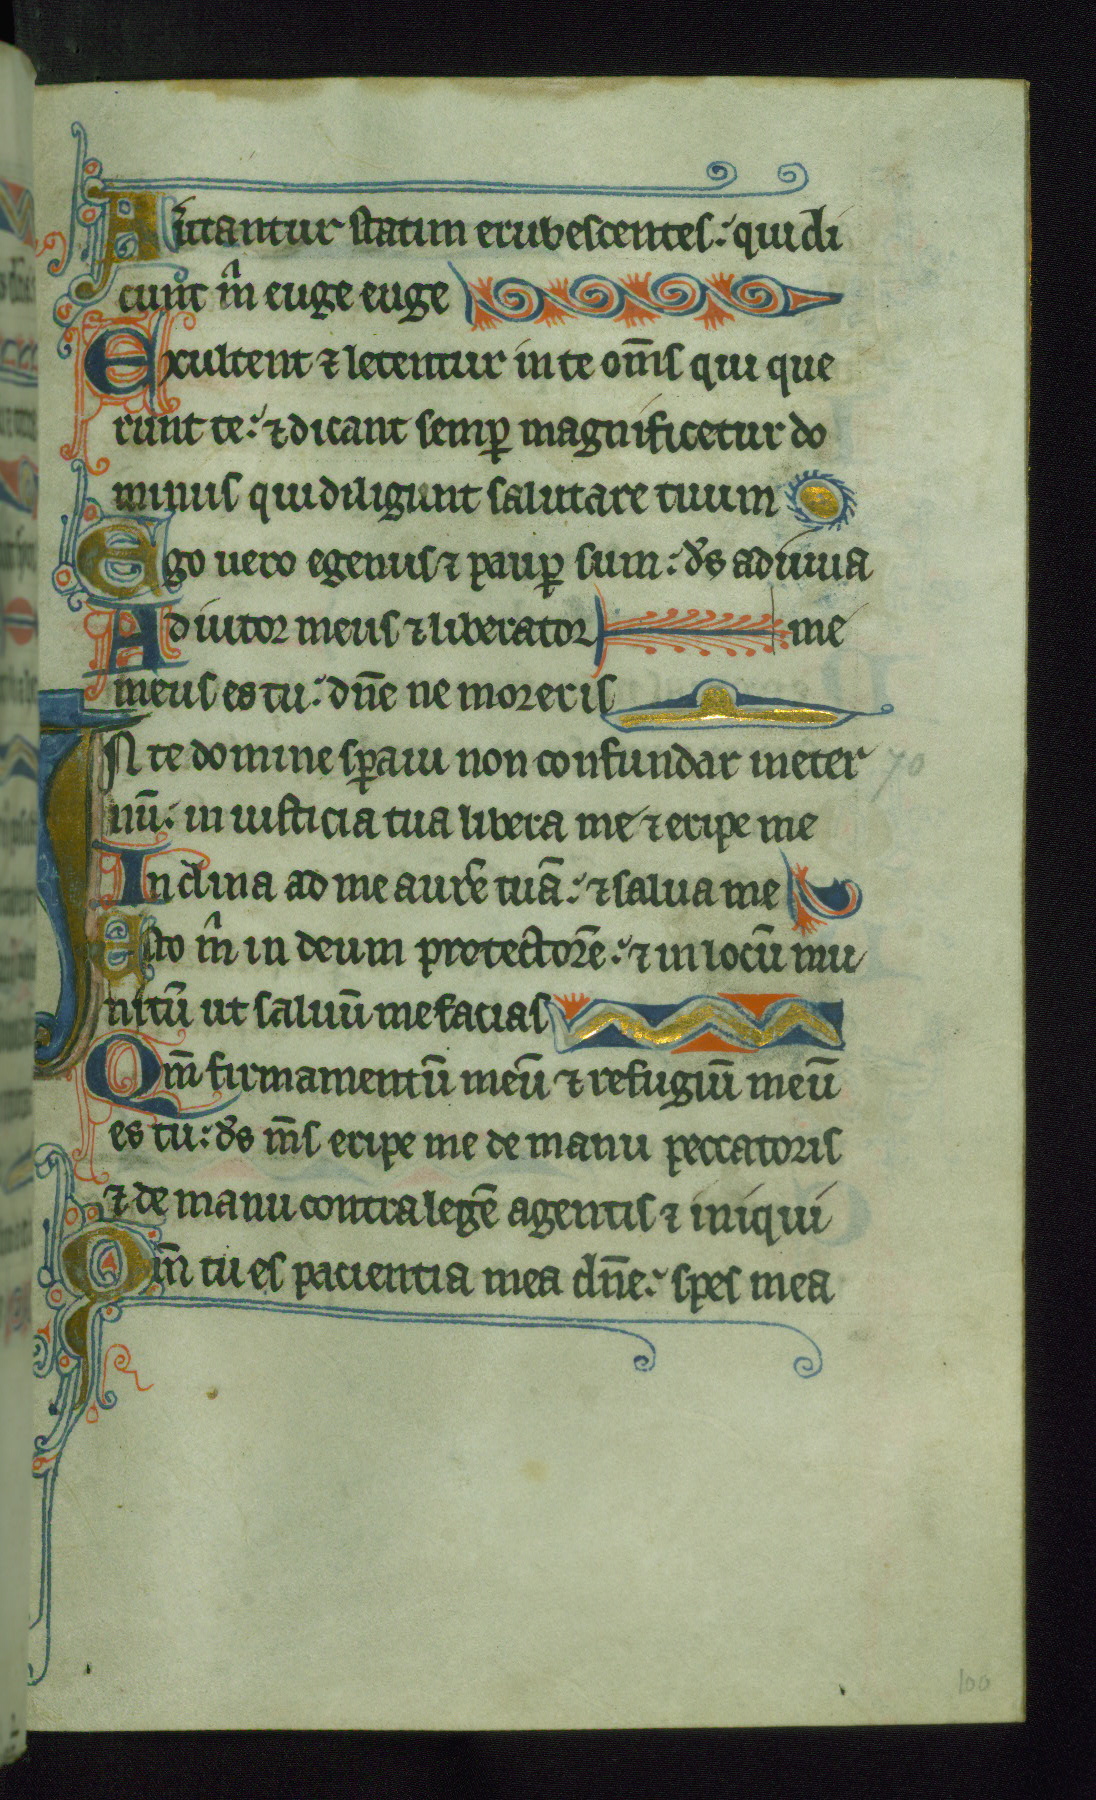 Auitantur statim erubescentes: qui di
cunt m̄ euge euge
Exultent ⁊ letentur in te om̄s qui que
runt te: ⁊ dicant semꝑ magnificetur do
minus qui diligunt salutare tuum
Ego uero egenus ⁊ pauꝑ sum: d̄s adiuua
Adiutor meus ⁊ liberator me
meus es tu: dn̄e ne moreris
IN te domine sꝑaui non confundar in eter
nū: in iusticia tua libera me ⁊ eripe me
Inclina ad me aurē tuā: ⁊ salua me
Esto m̄ in deum protectorē: ⁊ in locū mu
nitū ut saluū me facias
Qm̄ firmamentū meū ⁊ refugiū meū
es tu: d̄s m̄s eripe me de manu peccatoris
⁊ de manu contra legē agentis ⁊ iniqui
Qm̄ tu es paciencia mea dn̄e: spes mea
70
100